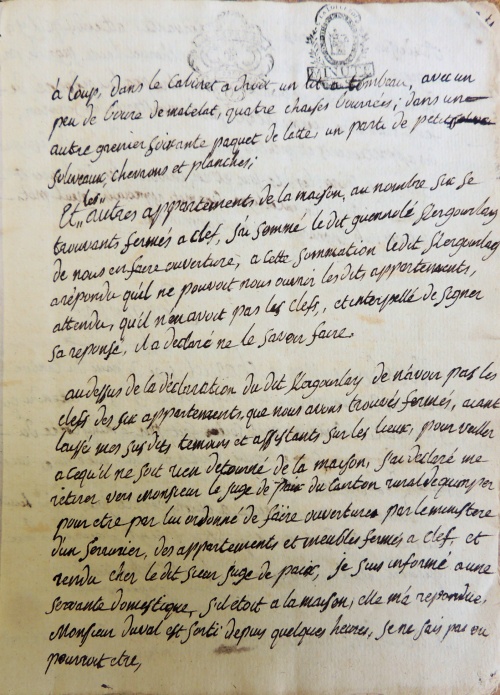 à loup, dans le Cabinet a droit, un lit a tombeau, avec un
peu de boure de matelat, quatre chaises bourrées; dans un
autre grenier soixante paquet de latte, un parti de petit
soliveaux, chevrons et planches;
Et les autres appartements de la maison, au nombre six se
trouvants fermés a clef, j'ai sommé le dit guennolé Kergourlay
de nous en faire ouverture, a cette sommation le dit Kergourlay
a répondu qu'il ne pouvoit nous ouvrir les dits appartements,
attendu, qu'il n'en avoit pas les clefs, et interpellé de signer
sa reponse, il a declaré ne le savoir faire.
au dessus de la déclaration du dit Kergourlay de n'avoir pas les
clefs des six appartements, que nous avons trouvés fermés, aiant
laissé mes sus dits temoins et assistants sur les lieux, pour veiller
a ce qu'il ne soit rien detourné de la maison, j'ai declaré me
retirer vers Monsieur le juge de Paix du Canton rural de quimper
pour etre par lui ordonné de faire ouverture par le ministere
d'un serrurier, des appartements et meubles fermés a clef, et
rendu cher le dit sieur juge de paix, je suis informé a une
servante domestique, s'il etoit a la maison, elle m'a repondue,
Monsieur duval est sorti depuis quelques heures, je ne sais pas ou
pourroit etre,